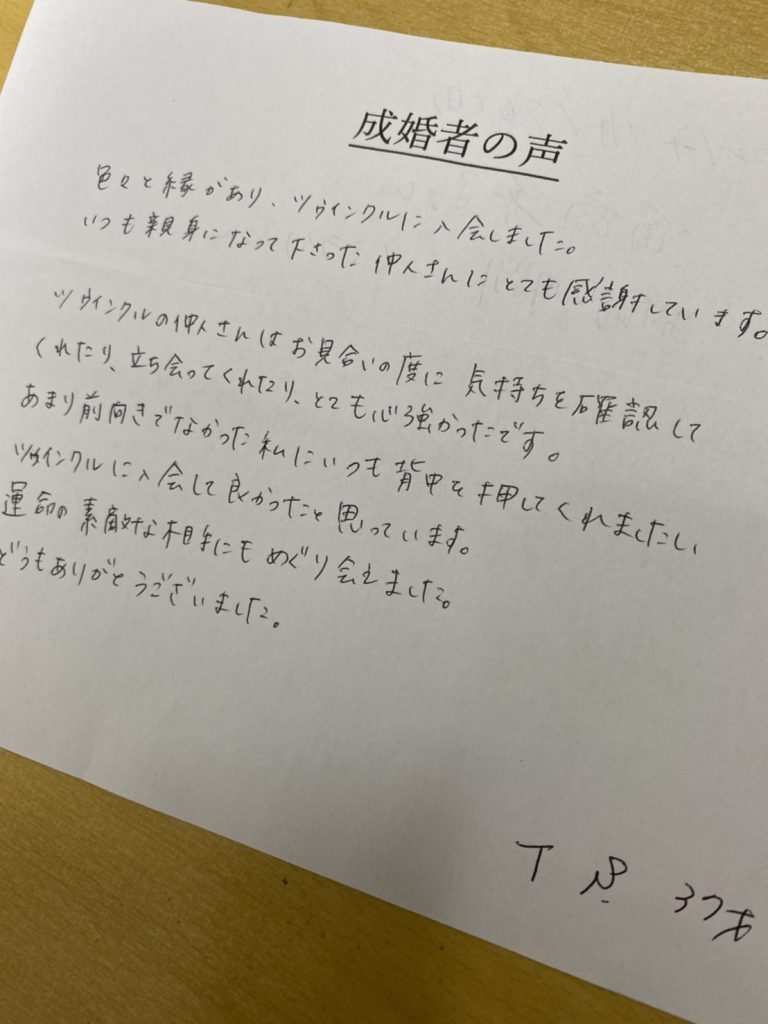 成婚者の声
色々と縁があり、ツヴィンクルに入会しました。
いつも親身になって下さった仲人さんにとても感謝しています。
ツヴィンクルの仲人さんはお見合いの度に気持ちを確認して
くれたり、立ち会ってくれたり、とても心強かったです。
あまり前向きでなかった私にいつも背中を押してくれましたし、
ツヴィンクルに入会して良かったと思っています。
運命の素敵な相手にもめぐり会えました。
どうもありがとうございました。
T